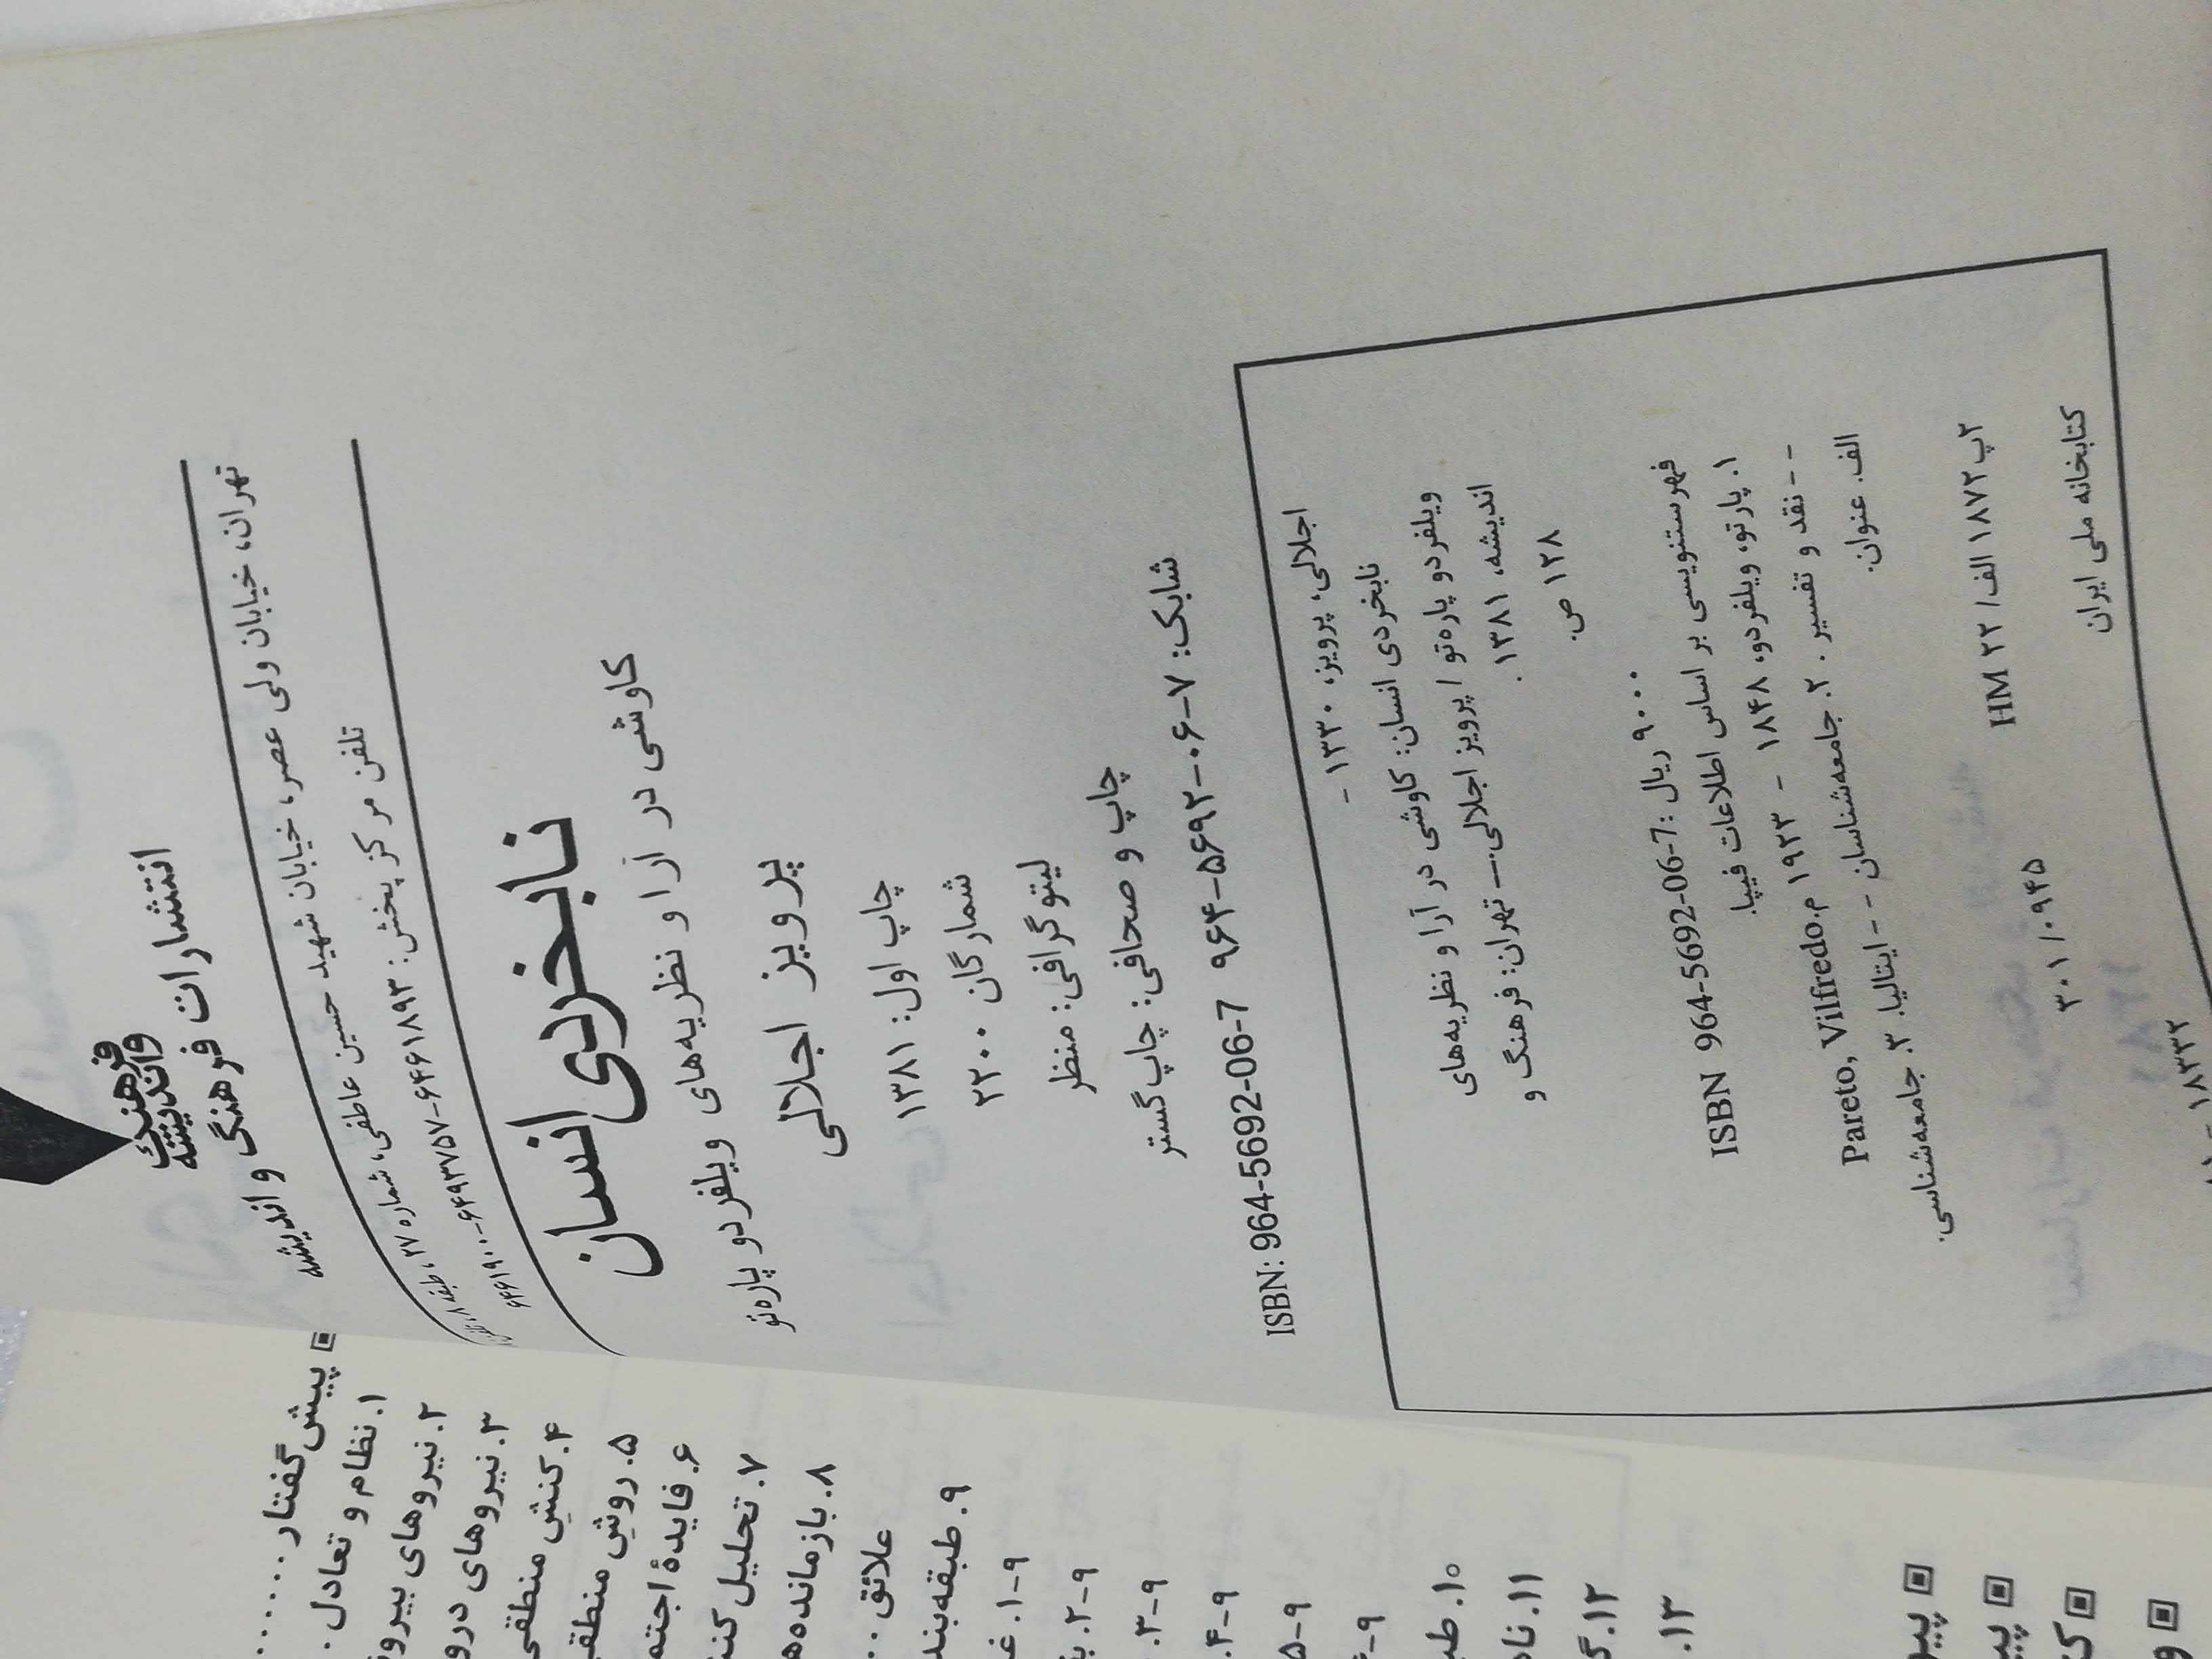 فرهنگ
و اندیشه
انتشارات فرهنگ و اندیشه
تهران، خیابان ولی عصر، خیابان شهید حسین عاطفی، شماره ۲۷، طبقه ۸
تلفن مرکز پخش: ۶۴۶۱۸۹۳-۶۴۹۳۷۵۷-۶۴۶۱۹۰۰
نابخردی انسان
کاوشی در آرا و نظریه‌های ویلفردو پاره‌تو
پرویز اجلالی
چاپ اول: ۱۳۸۱
شمارگان ۲۲۰۰
لیتوگرافی: منظر
چاپ و صحافی: چاپ گستر
شابک: ۷-۰۶-۵۶۹۲-۹۶۴ ISBN: 964-5692-06-7
اجلالی، پرویز، ۱۳۳۰ -
نابخردی انسان: کاوشی در آرا و نظریه‌های
ویلفردو پاره‌تو / پرویز اجلالی.— تهران: فرهنگ و
اندیشه، ۱۳۸۱.
۱۲۸ ص.
ISBN 964-5692-06-7: ۹۰۰۰ ریال
فهرستنویسی بر اساس اطلاعات فیپا.
۱. پارتو، ویلفردو، ۱۸۴۸ - ۱۹۲۳ م. Pareto, Vilfredo
-- نقد و تفسیر. ۲. جامعه‌شناسان -- ایتالیا. ۳. جامعه‌شناسی.
الف. عنوان.
۲پ۱۸۷۲الف/ HM ۲۲
۳۰۱/۰۹۴۵
کتابخانه ملی ایران
۱۸۳۳۲
پیش گفتار ......
۱. نظام و تعادل .
۲. نیروهای
۳. نیروهای
۴. کنشِ منطقی
۵. روشِ
۶. فایدهٔ
۷. تحلیل
۸.
علائق ..
۹.
۹-۱.
۹-۲.
۹-۳.
۹-۴.
۹-۵
۱۰.
۱۱.
۱۲.
۱۳.